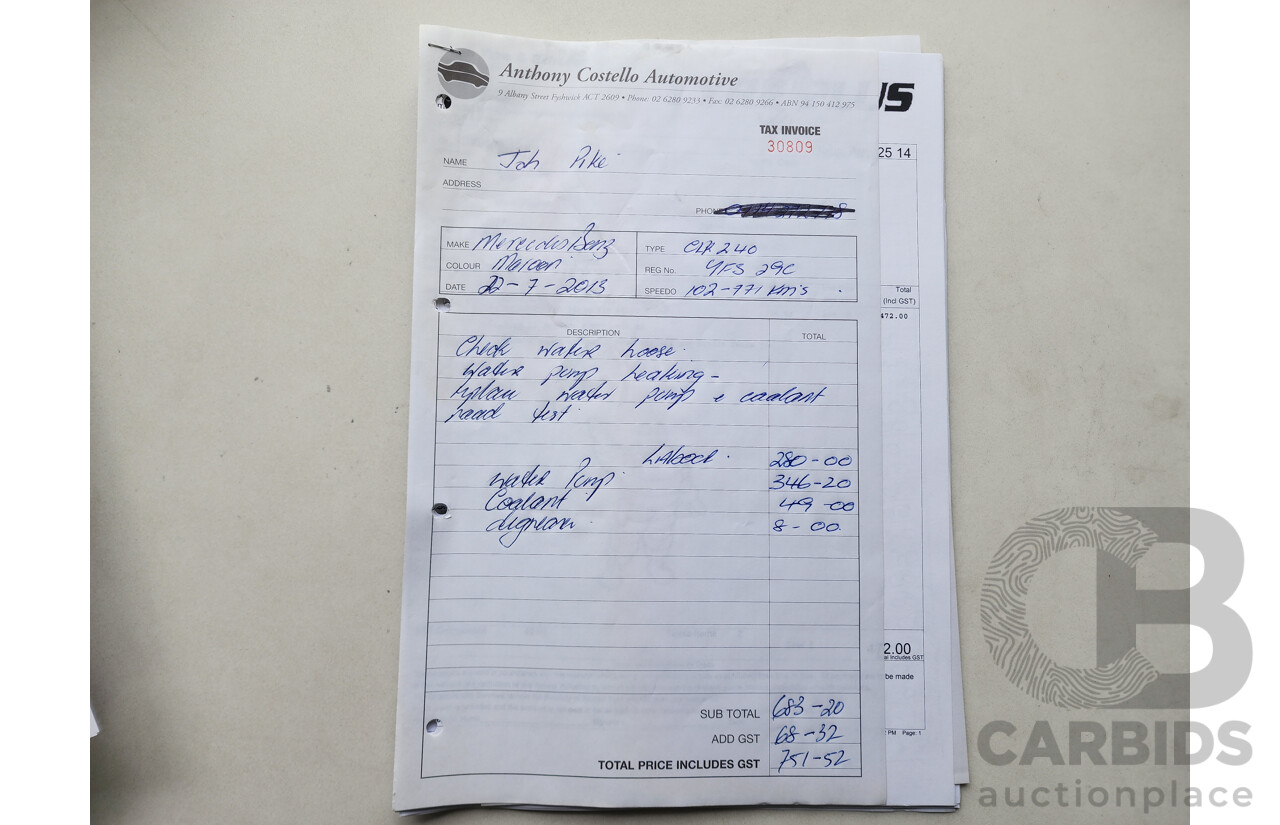 Anthony Costello Automotive
9 Albany Street Fyshwick ACT 2609 • Phone: 02 6280 9233 • Fax: 02 6280 9266 • ABN 94 150 412 975
TAX INVOICE
30809
NAME Pike
ADDRESS
PHON
MAKE Mercedes Benz
TYPE CLK 240
COLOUR Maroon
REG No. YFS 29C
DATE 22-7-2013
SPEEDO 102-771 Km's
DESCRIPTION
TOTAL
Check water hoose.
Water pump leaking -
replace water pump & coolant
road test.
Labour. 280-00
Water Pump. 346-20
Coolant 49-00
degreaser. 8-00
SUB TOTAL 683-20
ADD GST 68-32
TOTAL PRICE INCLUDES GST 751-52
US
25 14
Total
(Incl GST)
472.00
2.00
al Includes GST
be made
PM Page: 1
CB
CARBIDS
auctionplace